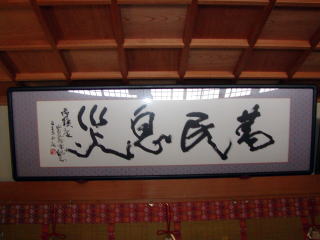 萬民息災